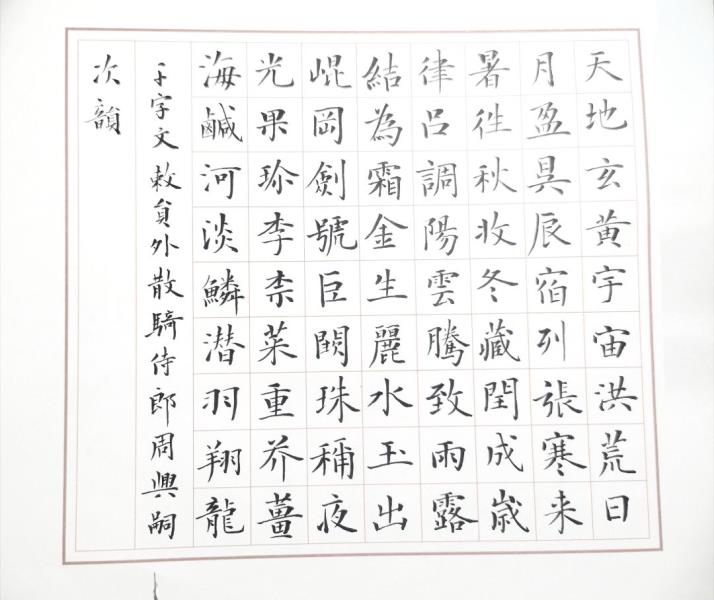 天地玄黄宇宙洪荒日
月盈昃辰宿列張寒来
暑往秋收冬藏閏成歲
律呂調陽雲騰致雨露
結為霜金生麗水玉出
崐岡劍號巨闕珠稱夜
光果珍李柰菜重芥薑
海鹹河淡鱗潜羽翔龍
千字文敕負外散騎侍郎周興嗣
次韻